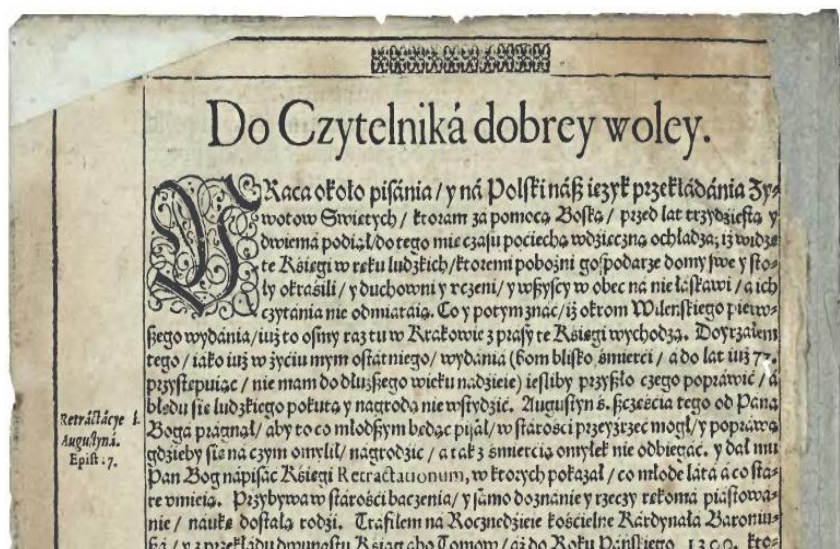 Do Czytelniká dobrey woley.
PRaca około pisánia / y ná Polski náß ięzyk przekłádánia Zy⸗
wotow Swiętych / ktoram zá pomocą Boską / przed lat trzydziestą y
dwiemá podiął / do tego mię czásu pociechą wdzięczną ochładza; iż widzę
te Księgi w ręku ludzkich / ktoremi pobożni gospodarze domy swe y sto⸗
ły okrasili / y duchowni y vczeni / y wßyscy w obec ná nie łáskáwi / á ich
czytánia nie odmiátáią. Co y potym znáć / iż okrom Wileńskiego pierw⸗
ßego wydánia / iuż to osmy raz tu w Krákowie z prasy te Księgi wychodzą. Doyrzałem
tego / iáko iuż w życiu mym ostátniego / wydánia (bom blisko śmierći / á do lat iuż 77.
przystępuiąc / nie mam do dłużßego wieku nádzieie) iesliby przyßło czego popráwić / á
błędu się ludzkiego pokutą y nagrodą nie wstydzić. Augustyn ś. ßczęścia tego od Páná
Bogá prágnął / áby to co młodßym będąc pisał / w stárości przeyźrzeć mogł / y popráwą
gdzieby się ná czym omylił / nágrodzić / á ták z śmiercią omyłek nie odbiegáć. y dał mu
Pan Bog nápisáć Księgi Retractationum, w ktorych pokazał / co młode látá á co stá⸗
re vmieią. Przybywa w stárości baczenia / y sámo doznánie y rzeczy ręKomá piastowa⸗
nie / naukę dostałą rodzi. Trafiłem ná Rocznedzieie kościelne Kárdynałá Baroniu⸗
ßá / y z przekłádu dwunastu Ksiąg ábo Tomow / áż do Roku Páńskiego 1200. kto⸗
Retráctácye ś.
Augustyná.
Epist: 7.